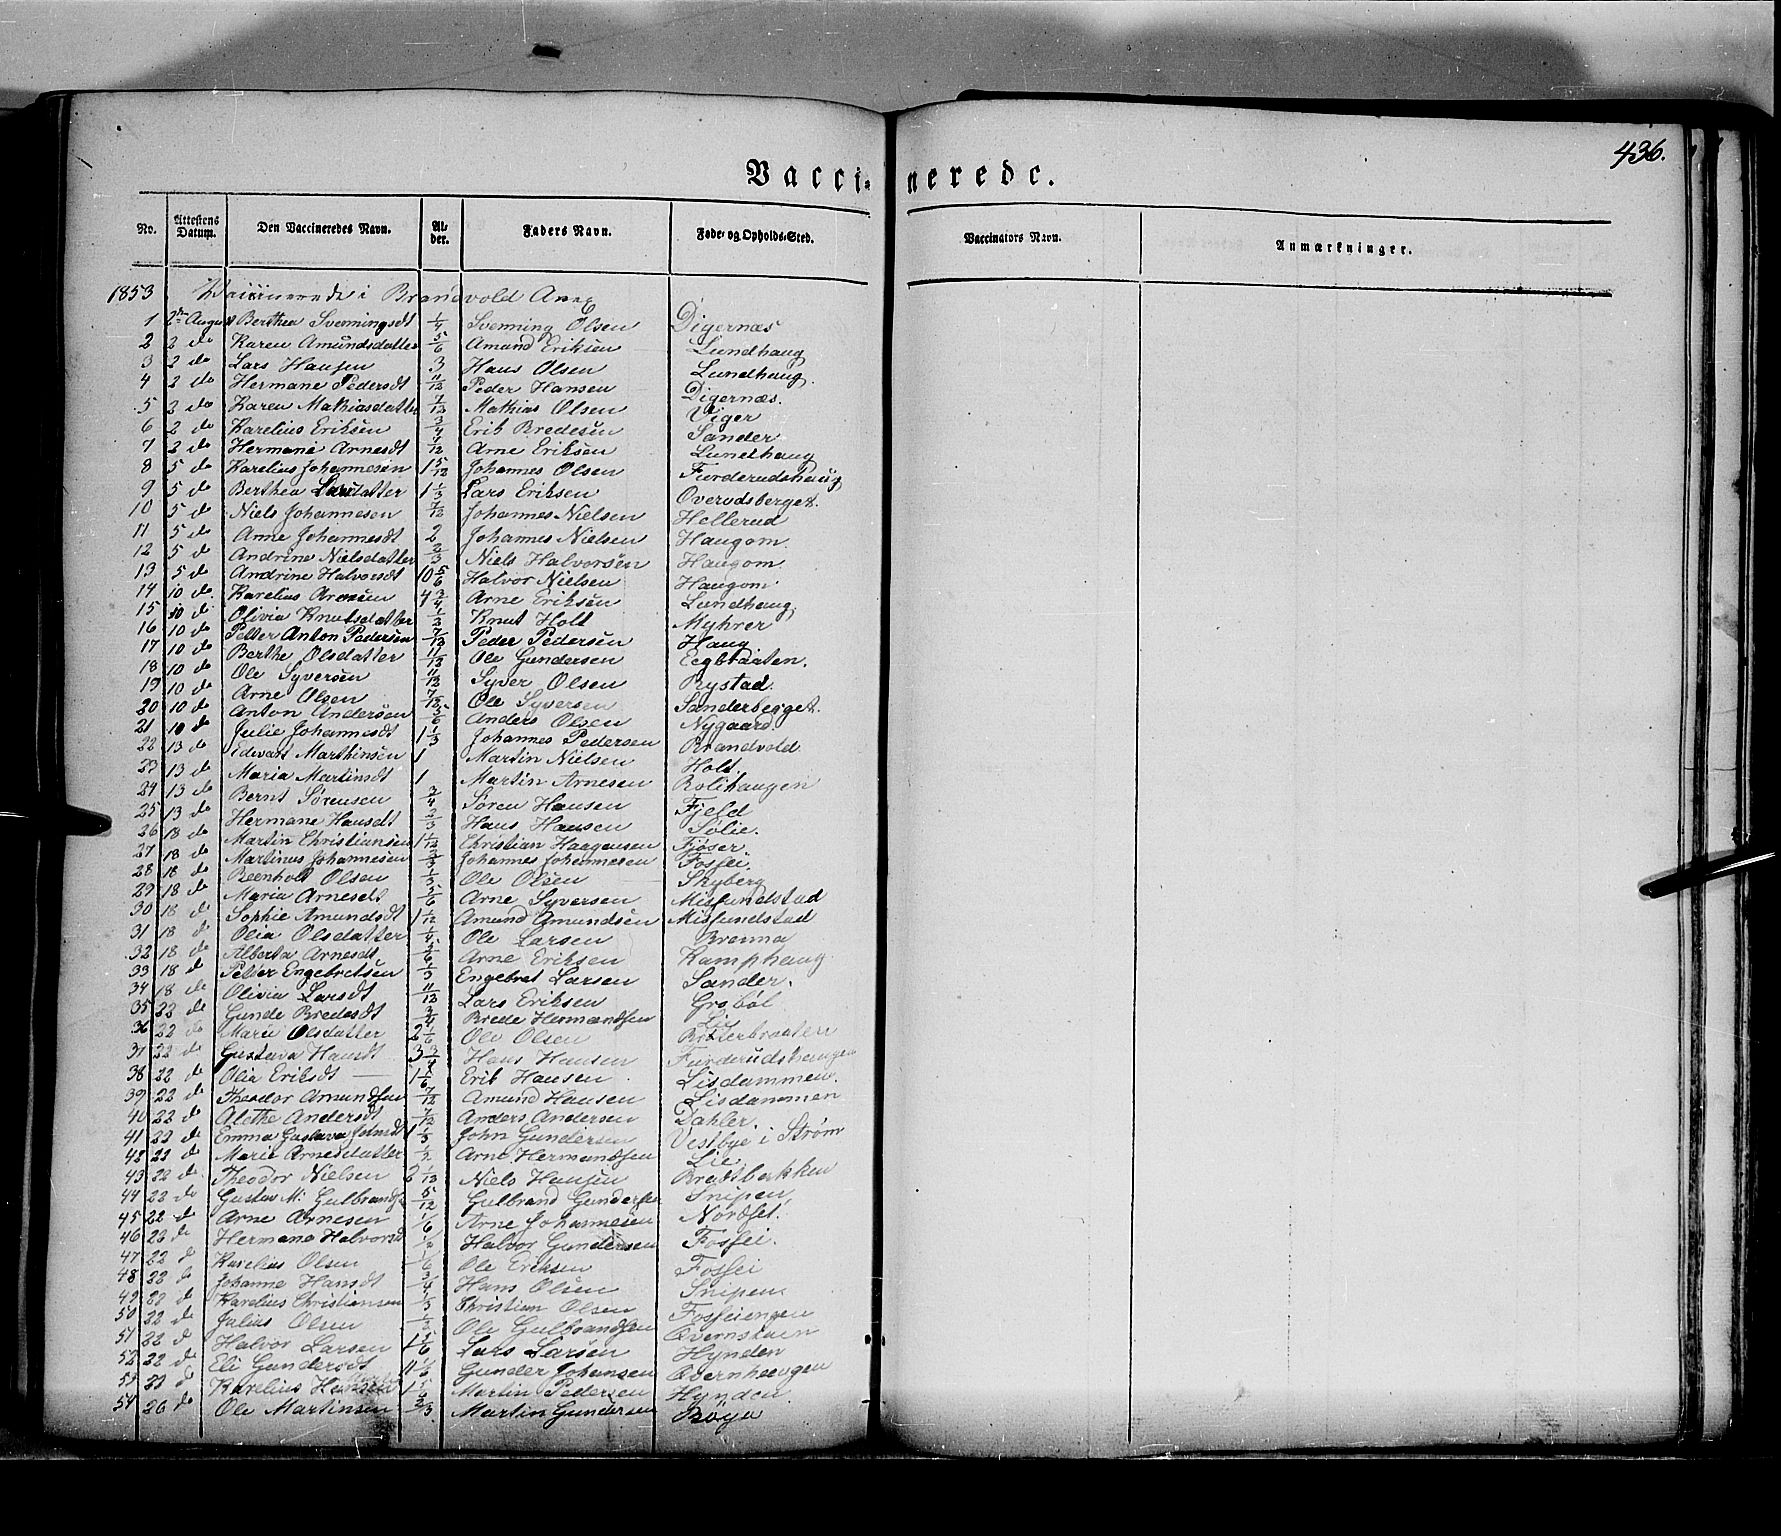 436.
Vaccinerede.
No. Attestens Datum. Den Vaccineredes Navn. Alder. Faders Navn. Føde- og Opholds-Sted. Vaccinators Navn. Anmærkninger.
1853 Vaccinerede i Brandvold Anex
1 2den August Berthea Svenningsdt 1/4 Svenning Olsen Digernæs
2 2 do Karen Amundsdatter 5/6 Amund Eriksen Lundhaug
3 2 do Lars Hansen 3 Hans Olsen Lundhaug.
4 2 do Hermane Pedersdt 11/12 Peder Hansen Digernæs.
5 2 do Karen Mathiasdatter 7/12 Mathias Olsen Viger
6 2 do Karelius Eriksen 3/4 Erik Bredesen Sander
7 2 do Hermane Arnesdt /12 Arne Eriksen Lundhaug
8 5 do Karelius Johannesen 1 5/12 Johannes Olsen Furderudshaug
9 5 do Berthea Larsdatter 1 1/3 Lars Eriksen Overudsberget.
10 5 do Niels Johannesen 7/12 Johannes Nielsen Hellerud
11 5 do Anne Johannesdt 2 Johannes Nielsen Haugom
12 5 do Andrine Nielsdatter 2/3 Niels Halvorsen Haugom
13 5 do Andrine Halvorsdt 10 5/6 Halvor Nielsen Haugom
14 10 do Karelius Arnesen 4 3/4 Arne Eriksen Lundhaug,
15 10 do Olivia Knutsdatter 1/2 Knut Holt Myhrer
16 10 do Petter Anton Pedersen 7/12 Peder Pedersen Haug
17 10 do Berthe Olsdatter 11/12 Ole Gundersen Eegbraaten.
18 10 do Ole Syversen 11/12 Syver Olsen Rystad.
19 10 do Arne Olsen 7/12 Ole Syversen Sanderbegget.
20 10 do Anton Andersen 5/6 Anders Olsen Nygaard.
21 10 do Julie Johannesdt 1 1/3 Johannes Pedersen Brandvold
22 13 do Edevart Marthinsen 1 Martin Nielsen Holt.
23 13 do Maria Martinsdt 1 Martin Arnesen Rolihaugen
24 13 do Bernt Sørensen 3/4 Søren Hansen Fjeld
25 13 do Hermane Hansdt 2/3 Hans Hansen Sølie.
26 18 do Martin Christiansen 1 1/12 Christian Haagensen Fjøser
27 18 do Martinus Johannesen 2/3 Johannes Johannesen Fosfei
28 18 do Beenholt Olsen 1/3 Ole Olsen Skyberg
29 18 do Maria Arnesdt 5/6 Arne Syversen Misfundstad
30 18 do Sophie Amundsdt 1 1/12 Amund Amundsen Misfundstad
31 18 do Olia Olsdatter 1/4 Ole Larsen Brenna
32 18 do Alberta Arnesdt 5/6 Arne Eriksen Kamphaug
33 18 do Petter Engebretsen 1/3 Engebret Larsen Sander.
34 18 do Olivia Larsdt 11/12 Lars Eriksen Grobøl
35 22 do Gunde Bredesdt 3/4 Brede Hermandsen Lie
36 22 do Marie Olsdatter 2 1/6 Ole Olsen
37 22 do Gustava Hansdt 3 3/4 Hans Hansen Furderudshaugen
38 22 do Olia Eriksdt 1 1/6 Erik Hansen Lisdammen.
39 22 do Theodor Amundsen 7/12 Amund Hansen Lisdammen
40 22 do Alethe Andersdt 7/12 Anders Andersen Dahler.
41 22 do Emma Gustava Johnsdt 1 1/3 John Gundersen Vestbye i Strøm
42 22 do Marie Arnesdatter 1/2 Arne Hermandsen Lie
43 22 do Theodor Nielsen 2 1/12 Niels Hansen Bradtbakken
44 22 do Gustav M: Gulbrands 5/12 Gulbrand Gundersen Snipen,
45 22 do Arne Arnesen 1/6 Arne Johannesen Nordset.
46 22 do Hermane Halvorsd 1/2 Halvor Gundersen Fosfei.
47 22 d Karelius Olsen 1/6 Ole Eriksen Fosfei
48 22 do Johanne Hansdt 3/4 Hans Olsen Snipen
49 22 do Karelius Christiansen 1/3 Christian Olsen Fosfeiengen
50 22 do Julius Olsen 1/2 Ole Gulbrandsen Overnstuen
51 22 d Halvor Larsen 1 5/6 Lars Larsen Hynden
52 22 do Eli Gundersdt 11 1/2 Gunder Johansen Overnhaugen
53 22 d Karelius 1 Martin Pedersen Hynden
54 26 do Ole Martinsen 2/3 Martin Gundersen Røya